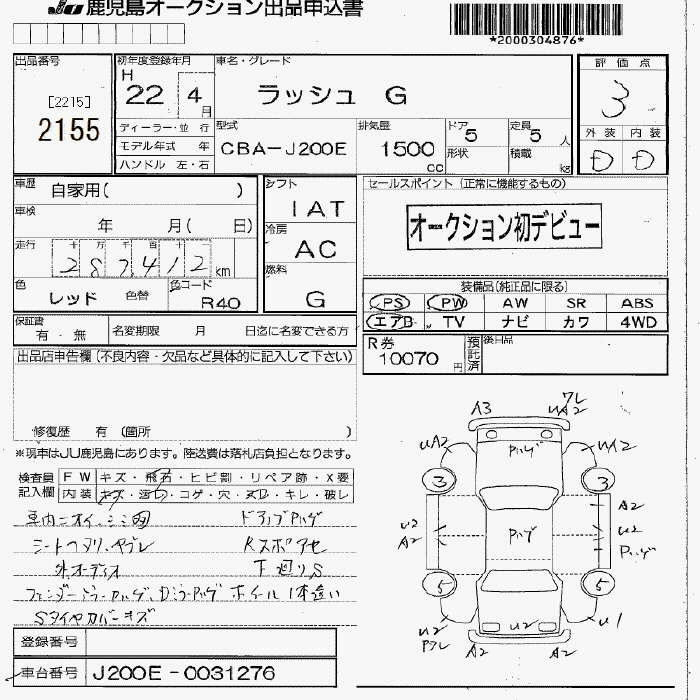 JU 鹿児島オークション出品申込書
*2000304876*
出品番号
[2215]
2155
初年度登録年月
H
22 4 月
車名・グレード
ラッシュ G
評価点
3
外装 内装
D D
ディーラー・並 行
モデル年式 年
ハンドル 左・右
型式
CBA-J200E
排気量
1500 cc
ドア 5
形状
定員 5 人
積載 kg
車歴 自家用( )
車検 年 月( 日)
走行 十 万 千 百 十
287,412 km
色 レッド 色替
色コード R40
シフト
IAT
冷房
AC
燃料
G
セールスポイント (正常に機能するもの)
オークション初デビュー
装備品(純正品に限る)
PS PW AW SR ABS
エアB TV ナビ カワ 4WD
保証書 有・無
名変期限 月 日迄に名変できる方
R券
10070 円
預託済
後日品
出品店申告欄(不良内容・欠品など具体的に記入して下さい)
修復歴 有 (箇所 )
※現車はJU鹿児島にあります。陸送費は落札店負担となります。
検査員記入欄
FW キズ・飛石・ヒビ割・リペア跡・X要
内装 キズ・汚れ・コゲ・穴・ヌレ・キレ・破レ
車内ニオイ、シミ
ドアップハゲ
シートヘタリ、ヤブレ
Rスポアセ
外オーディオ
下廻りS
フェンダーミラーハゲ、Dミラーハゲ ホイル1本違い
Sタイヤカバーキズ
A3
ワレ
UA2
UA2
ハゲ
UA2
3
3
A2
U2
A2
ハゲ
U2
ハゲ
5
5
U2
ワレ
A2
U2
A2
U1
登録番号
車台番号 J200E-0031276